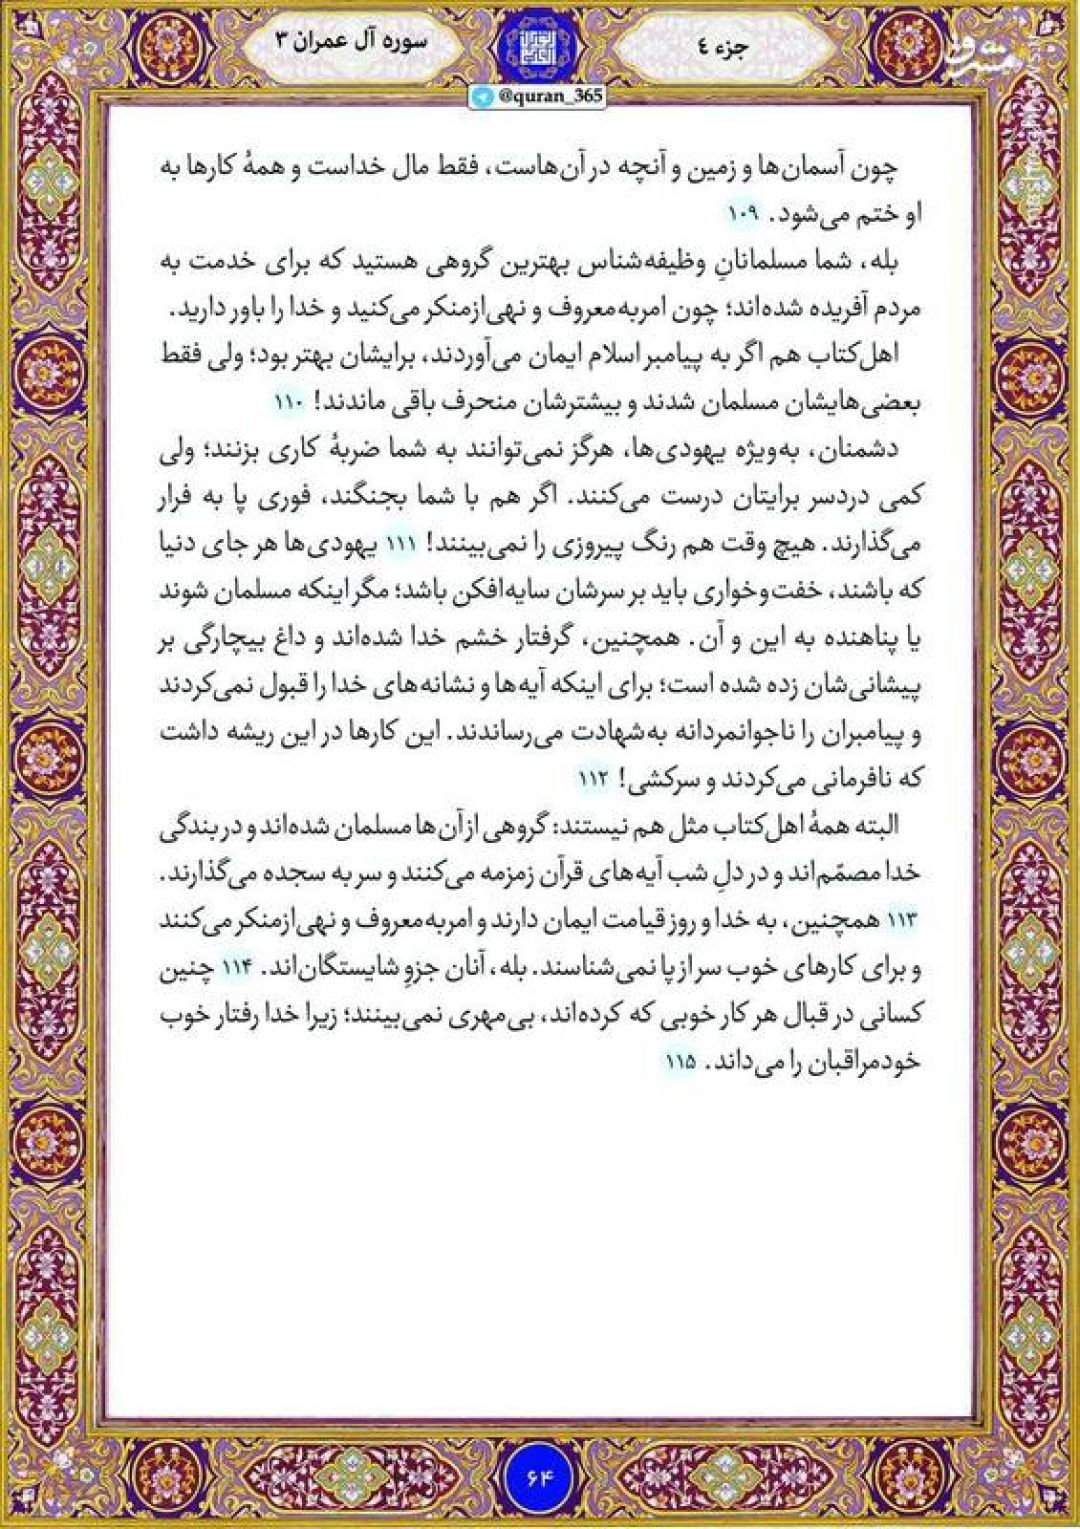 جزء ٤
سوره آل عمران ٣
@quran_365
مشرق
mashreghnews.ir
چون آسمان‌ها و زمین و آنچه در آن‌هاست، فقط مال خداست و همهٔ کارها به
او ختم می‌شود. ۱۰۹
بله، شما مسلمانانِ وظیفه‌شناس بهترین گروهی هستید که برای خدمت به
مردم آفریده شده‌اند؛ چون امربه‌معروف و نهی‌ازمنکر می‌کنید و خدا را باور دارید.
اهل‌کتاب هم اگر به پیامبر اسلام ایمان می‌آوردند، برایشان بهتر بود؛ ولی فقط
بعضی‌هایشان مسلمان شدند و بیشترشان منحرف باقی ماندند! ۱۱۰
دشمنان، به‌ویژه یهودی‌ها، هرگز نمی‌توانند به شما ضربهٔ کاری بزنند؛ ولی
کمی دردسر برایتان درست می‌کنند. اگر هم با شما بجنگند، فوری پا به فرار
می‌گذارند. هیچ وقت هم رنگ پیروزی را نمی‌بینند! ۱۱۱ یهودی‌ها هر جای دنیا
که باشند، خفت‌وخواری باید بر سرشان سایه‌افکن باشد؛ مگر اینکه مسلمان شوند
یا پناهنده به این و آن. همچنین، گرفتار خشم خدا شده‌اند و داغ بیچارگی بر
پیشانی‌شان زده شده است؛ برای اینکه آیه‌ها و نشانه‌های خدا را قبول نمی‌کردند
و پیامبران را ناجوانمردانه به‌شهادت می‌رساندند. این کارها در این ریشه داشت
که نافرمانی می‌کردند و سرکشی! ۱۱۲
البته همهٔ اهل‌کتاب مثل هم نیستند: گروهی از آن‌ها مسلمان شده‌اند و در بندگی
خدا مصمّم‌اند و در دلِ شب آیه‌های قرآن زمزمه می‌کنند و سر به سجده می‌گذارند.
۱۱۳ همچنین، به خدا و روز قیامت ایمان دارند و امربه‌معروف و نهی‌ازمنکر می‌کنند
و برای کارهای خوب سر از پا نمی‌شناسند. بله، آنان جزوِ شایستگان‌اند. ۱۱۴ چنین
کسانی در قبال هر کار خوبی که کرده‌اند، بی‌مهری نمی‌بینند؛ زیرا خدا رفتار خوب
خودمراقبان را می‌داند. ۱۱۵
۶۴